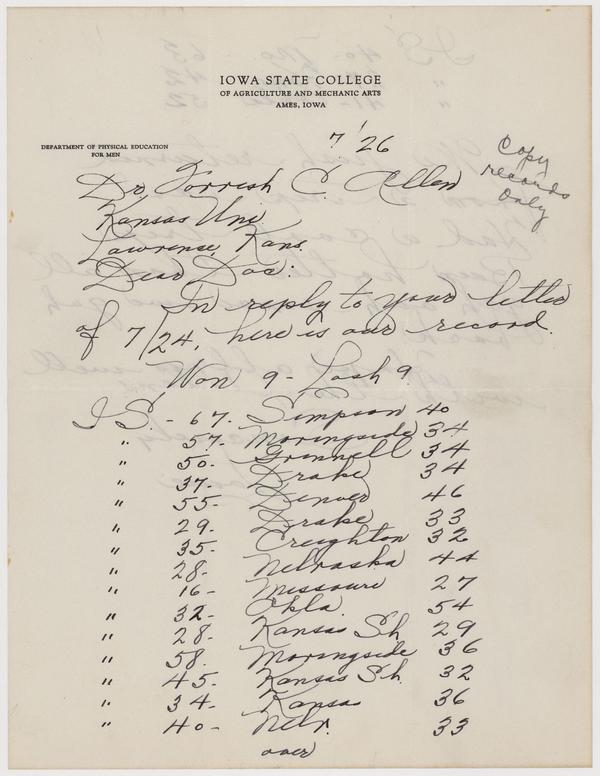 IOWA STATE COLLEGE
OF AGRICULTURE AND MECHANIC ARTS
AMES, IOWA
DEPARTMENT OF PHYSICAL EDUCATION
FOR MEN
7/26
Copy
records
only
Dr Forrest C. Allen
Kansas Uni.
Lawrence, Kans.
Dear Doc:
In reply to your letter
of 7/24, here is our record.
Won 9 - Losh 9.
I S. - 67. Simpson 40
" 57. Morningside 34
" 50. Grinnell 34
" 37. Drake 34
" 55. Denver 46
" 29. Drake 33
" 35. Creighton 32
" 28. Nebraska 44
" 16. Missouri 27
" 32. Okla. 54
" 28. Kansas Sh 29
" 58. Morningside 36
" 45. Kansas Sh. 32
" 34. Kansas 36
" 40. Nebr. 33
over